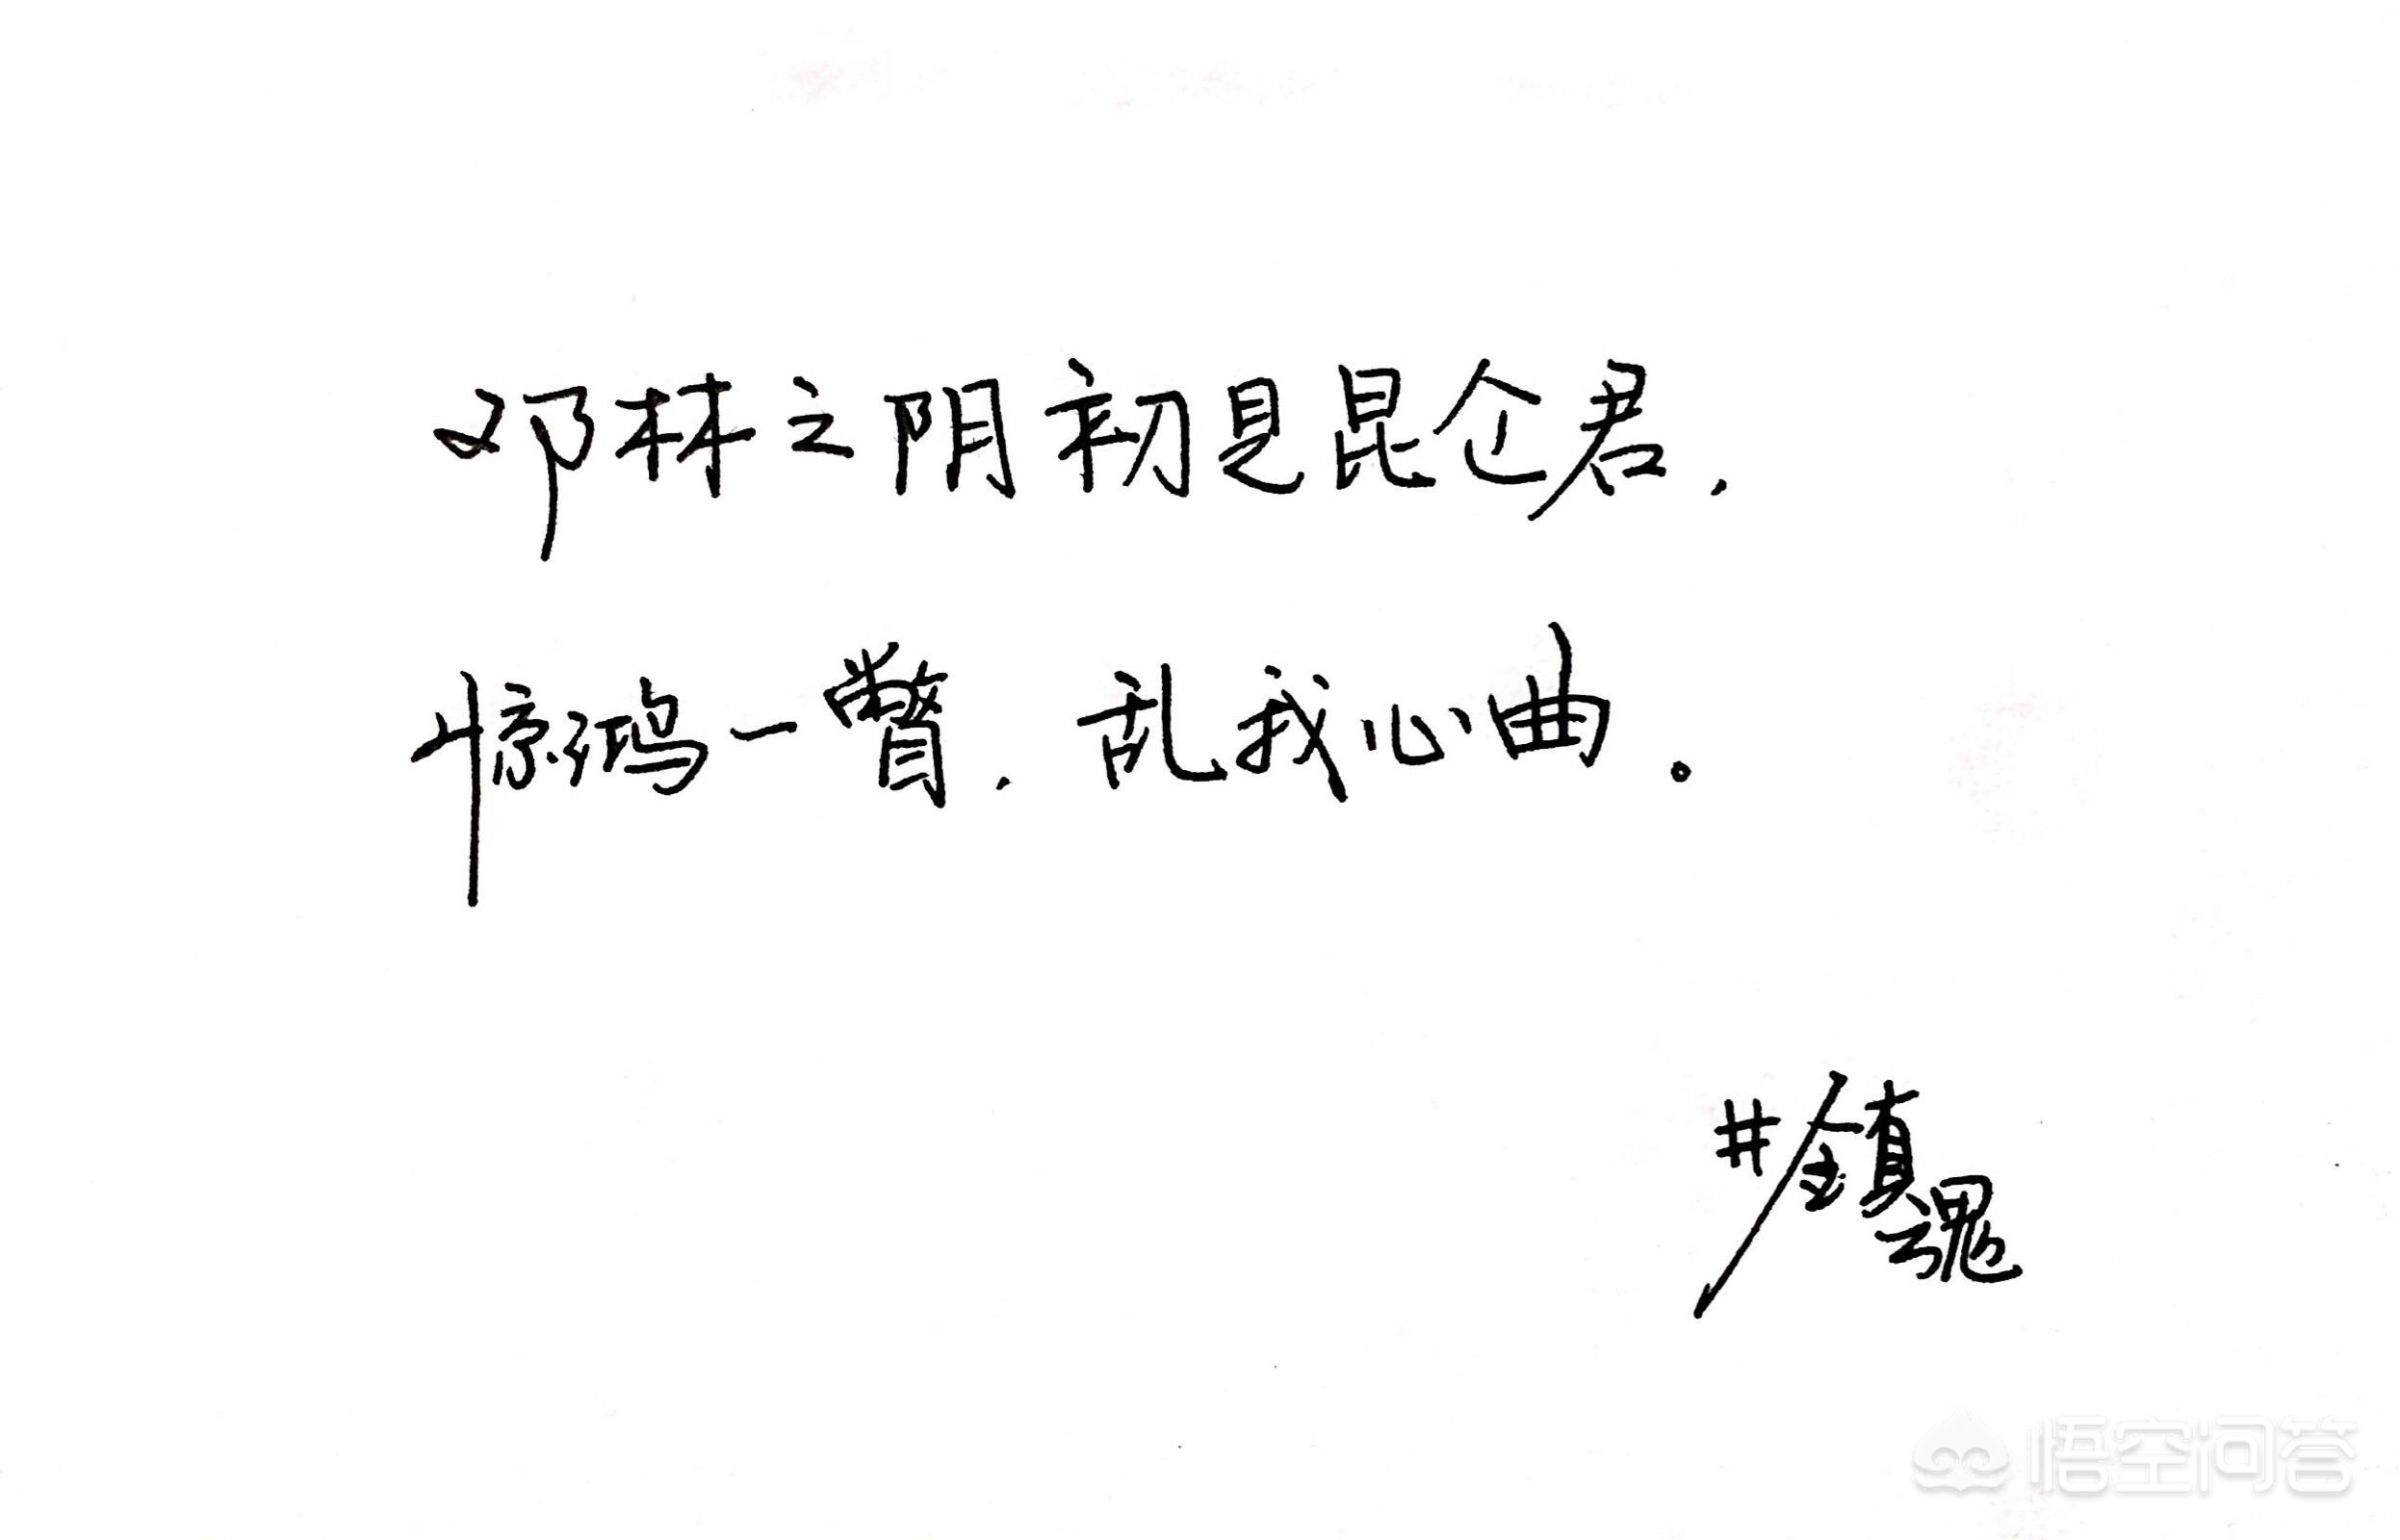 邓林之阴初是昆仑君,
惊鸿一瞥,乱我心曲。
#镇魂
悟空问答